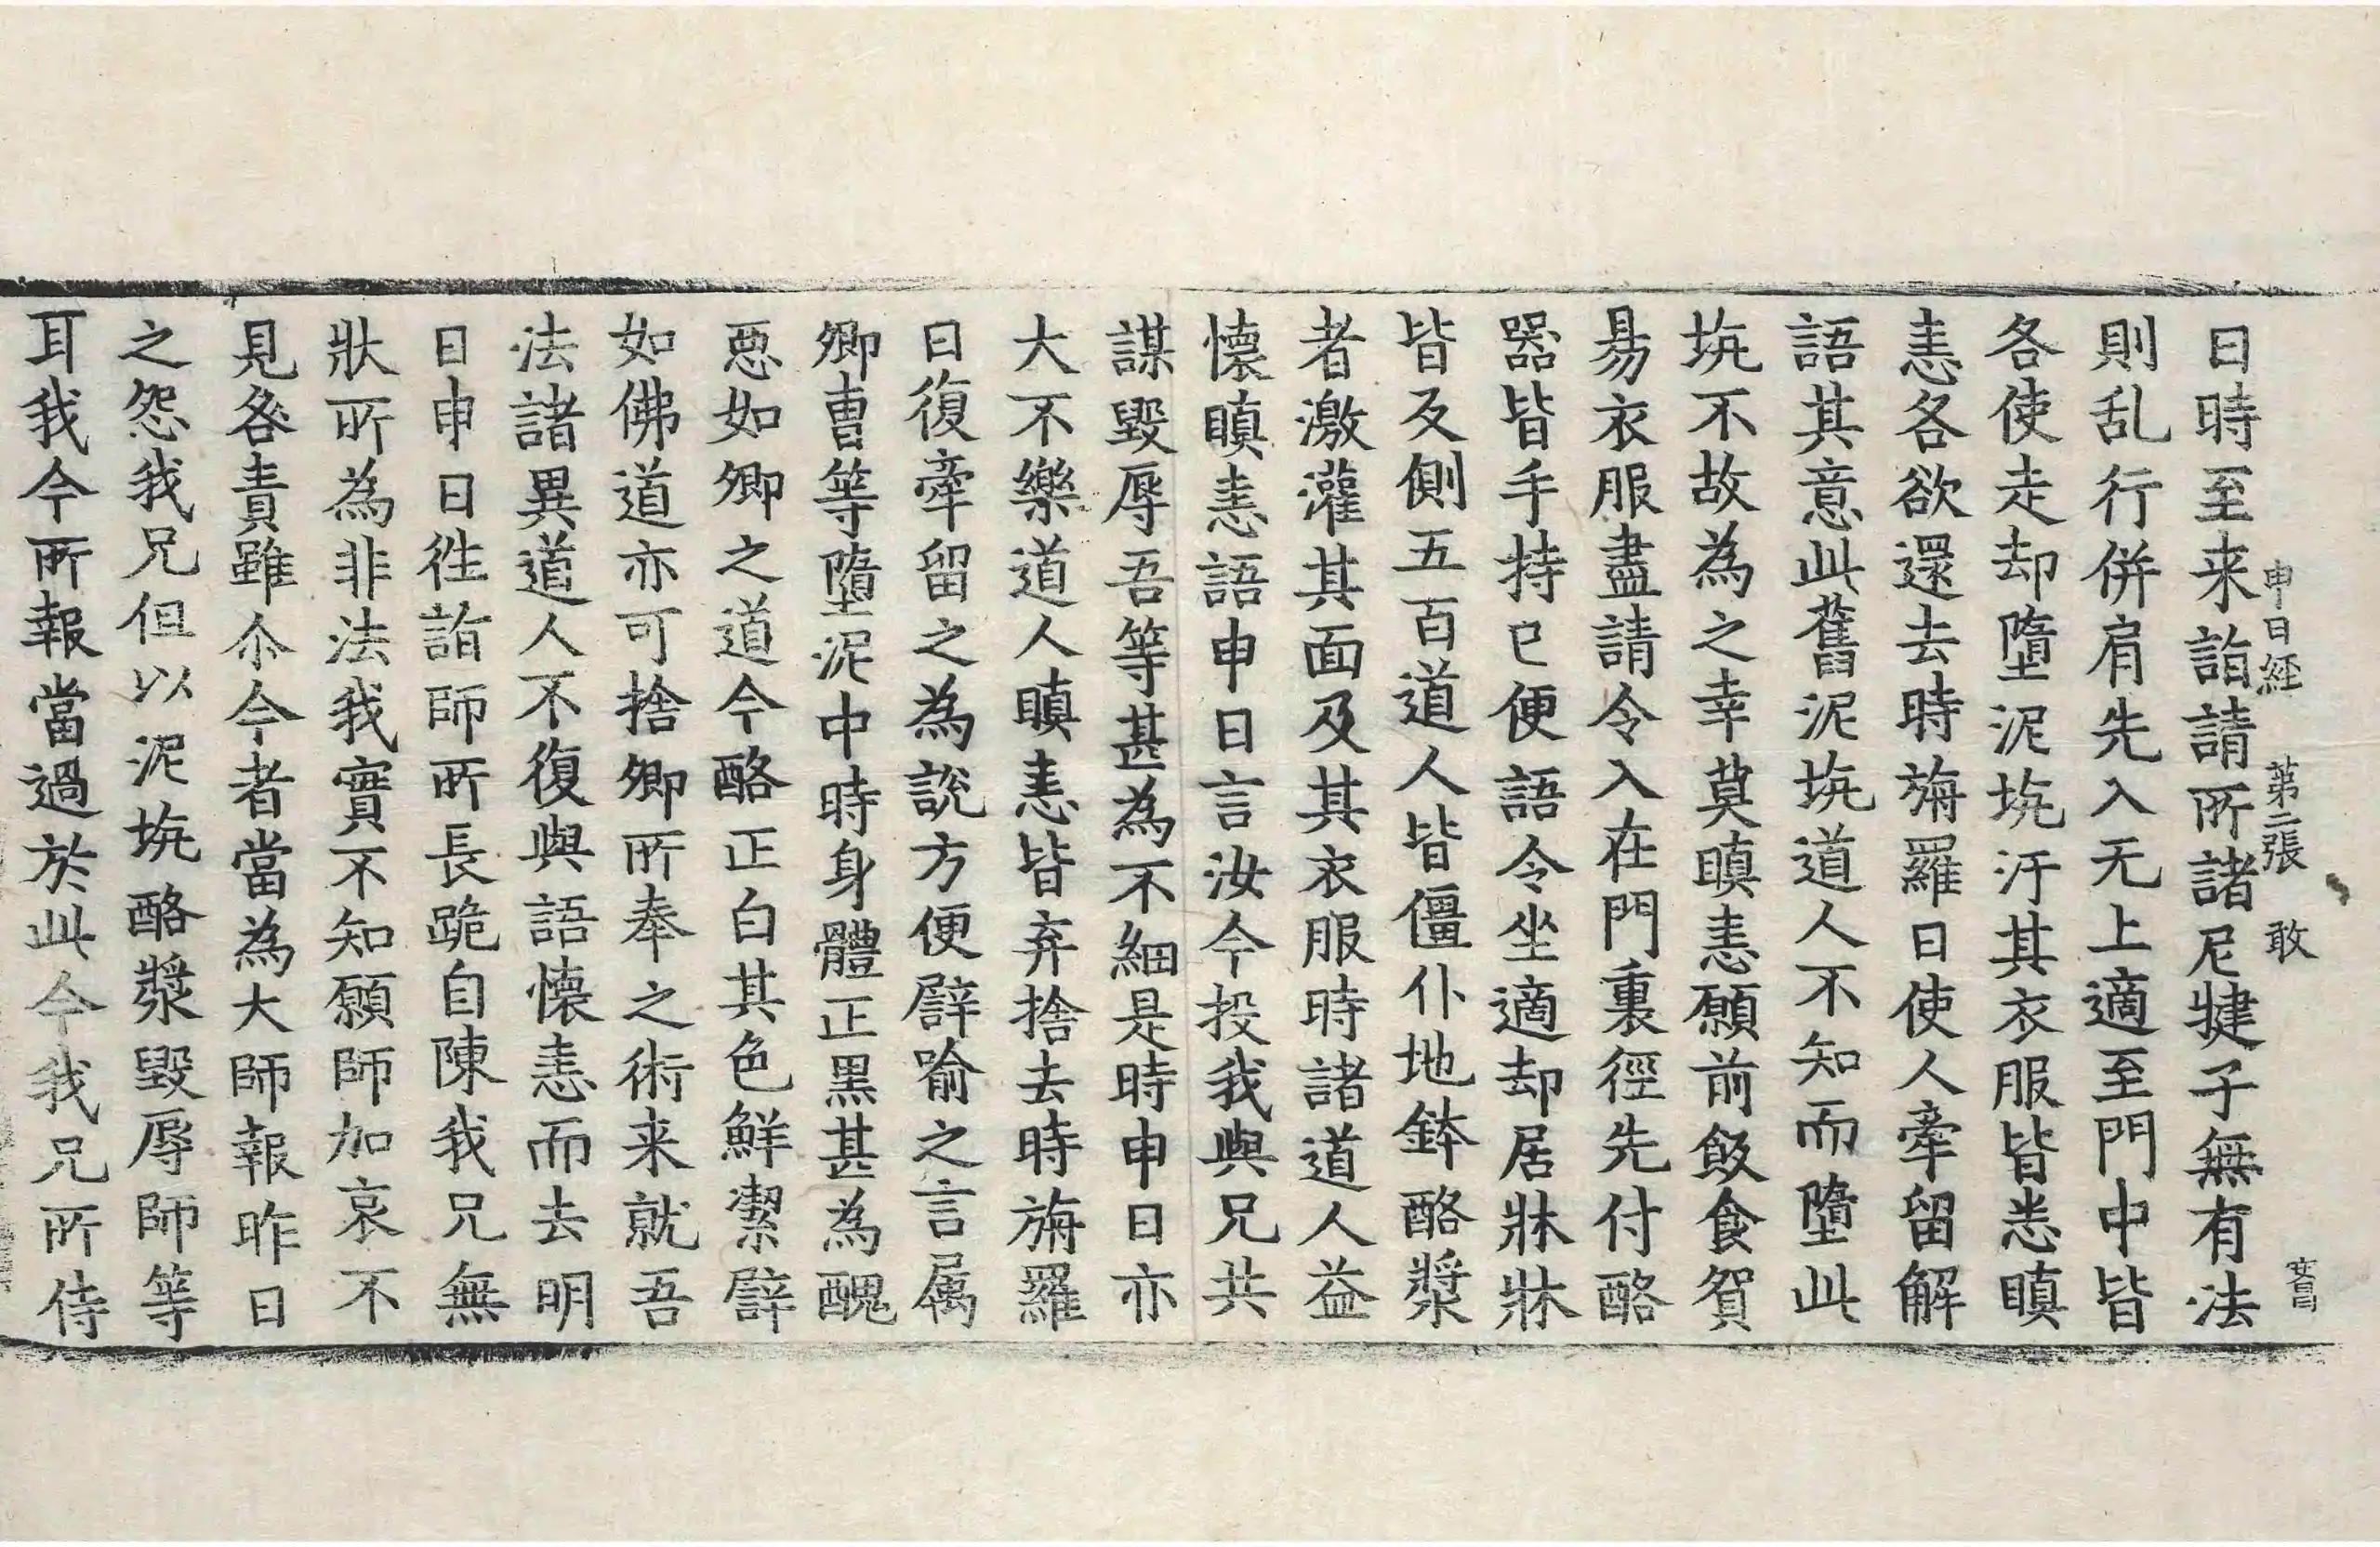 申日経 第二張 敢
日時至来詣請所諸尼揵子無有法
則乱行併肩先入无上適至門中皆
各使走却墮泥坑汙其衣服皆悉瞋
恚各欲還去時旃羅日使人牽留解
語其意此舊泥坑道人不知而墮此
坑不故為之幸莫瞋恚願前飯食賀
易衣服盡請令入在門裏徑先付酪
器皆手持已便語令坐適却居牀牀
皆反側五百道人皆僵仆地鉢酪漿
者激灌其面及其衣服時諸道人益
懷瞋恚語申日言汝今投我與兄共
謀毀辱吾等甚為不細是時申日亦
大不樂道人瞋恚皆弃捨去時旃羅
日復牽留之為說方便譬喻之言属
卿曹等墮泥中時身體正黑甚為醜
惡如卿之道今酪正白其色鮮潔譬
如佛道亦可捨卿所奉之術来就吾
法諸異道人不復與語懷恚而去明
日申日往詣師所長跪自陳我兄無
狀所為非法我實不知願師加哀不
見咎責雖尒今者當為大師報昨日
之怨我兄但以泥坑酪漿毀辱師等
耳我今所報當過於此今我兄所侍